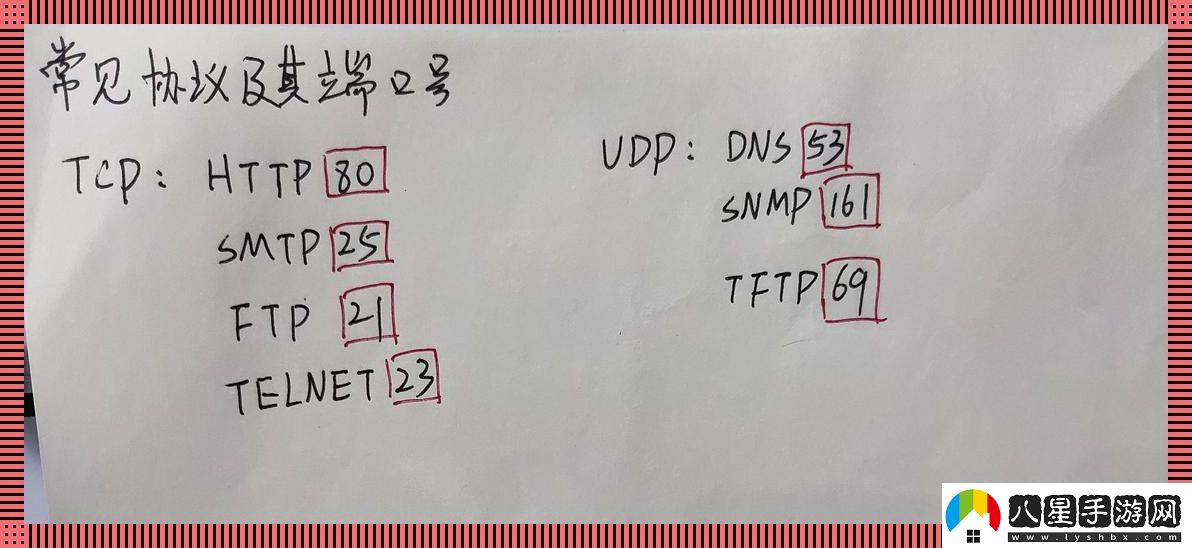 常见协议及其端口号
TCP: HTTP 80
SMTP 25
FTP 21
TELNET 23
UDP: DNS 53
SNMP 161
TFTP 69
八星手游网
www.lyshbx.com